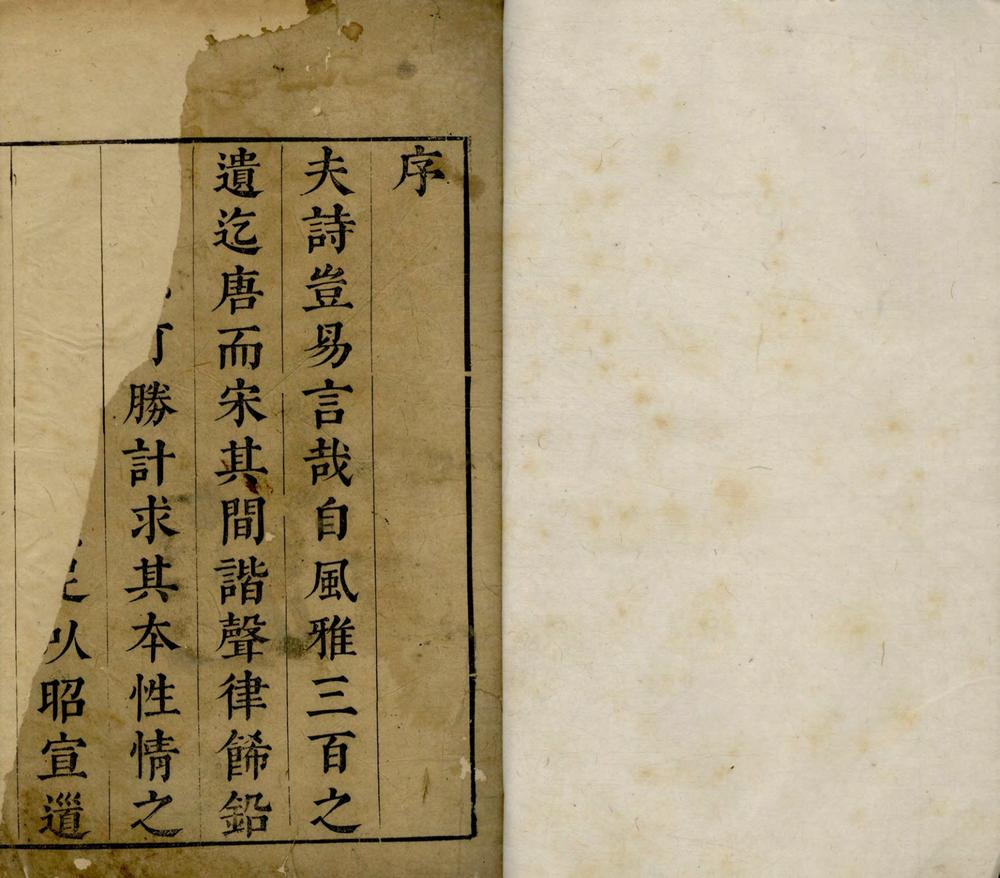 序
夫詩豈易言哉自風雅三百之
遺迄唐而宋其間諧聲律餙鉛
可勝計求其本性情之
以昭宣道